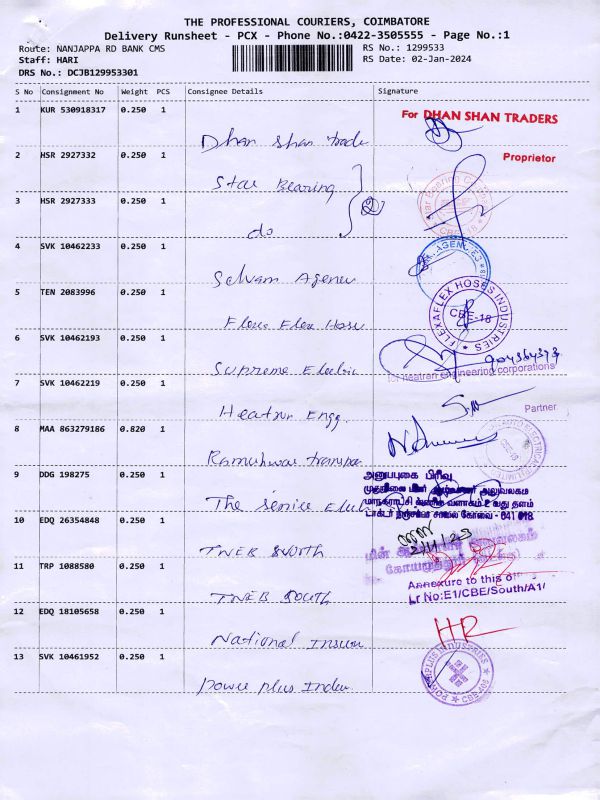 THE PROFESSIONAL COURIERS, COIMBATORE
Delivery Runsheet - PCX - Phone No.:0422-3505555 - Page No.:1
Route: NANJAPPA RD BANK CMS RS No.: 1299533
Staff: HARI RS Date: 02-Jan-2024
DRS No.: DCJB129953301
S No Consignment No Weight PCS Consignee Details Signature
1 KUR 530918317 0.250 1 Dhan Shan trade For DHAN SHAN TRADERS
Proprietor
2 HSR 2927332 0.250 1 Star Bearing
3 HSR 2927333 0.250 1 do
4 SVK 10462233 0.250 1 Selvam
5 TEN 2083996 0.250 1 Flexa Flex Hose FLEXAFLEX HOSES INDUSTRIES CBE-18
6 SVK 10462193 0.250 1 Supreme Electric
for heatran engineering corporations
7 SVK 10462219 0.250 1 Heatran Engg.
Partner
8 MAA 863279186 0.820 1
9 DDG 198275 0.250 1 The Service
அனுப்புகை பிரிவு
10 EDQ 26354848 0.250 1 TNEB South
11 TRP 1088580 0.250 1 TNEB South
Annexure to this
Lr No:E1/CBE/South/A1/
12 EDQ 18105658 0.250 1 National
13 SVK 10461952 0.250 1 Power Plus